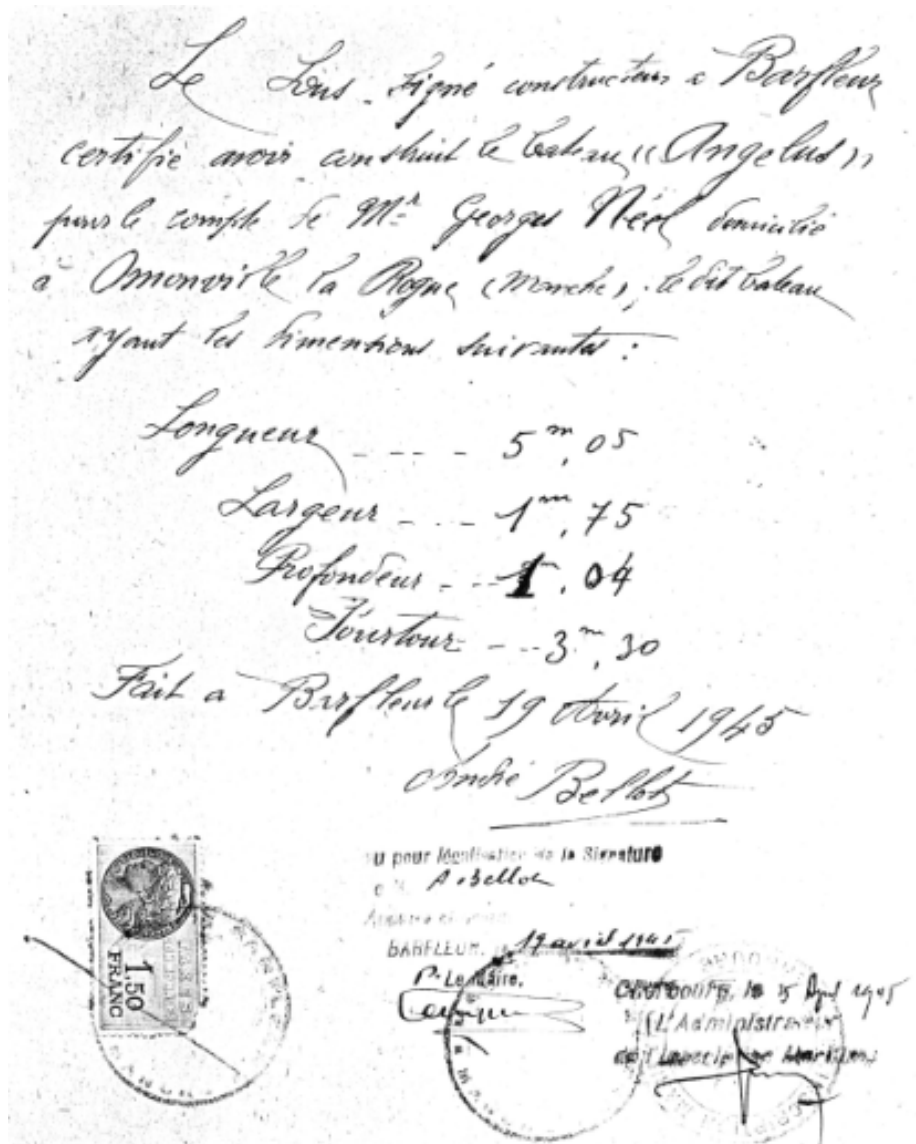 Le Sous-signé constructeur a Barfleur
certifie avoir construit le bateau "Angelus"
pour le compte de Mr Georges Néel domicilié
à Omonville la Rogue (Manche), le dit bateau
ayant les dimensions suivantes :
Longueur - - - - 5m,05
Largeur - - - - 1m,75
Profondeur - - - 1m,04
Pourtour - - - 3m,30
Fait a Barfleur le 19 Avril 1945
André Bellot
u pour légalisation de la Signature
A. Bellot
BARFLEUR, 19 avril 1945
P. Le Maire,
Cherbourg, le
L'Administrateur
de l'Inscription Maritime
1,50
FRANC